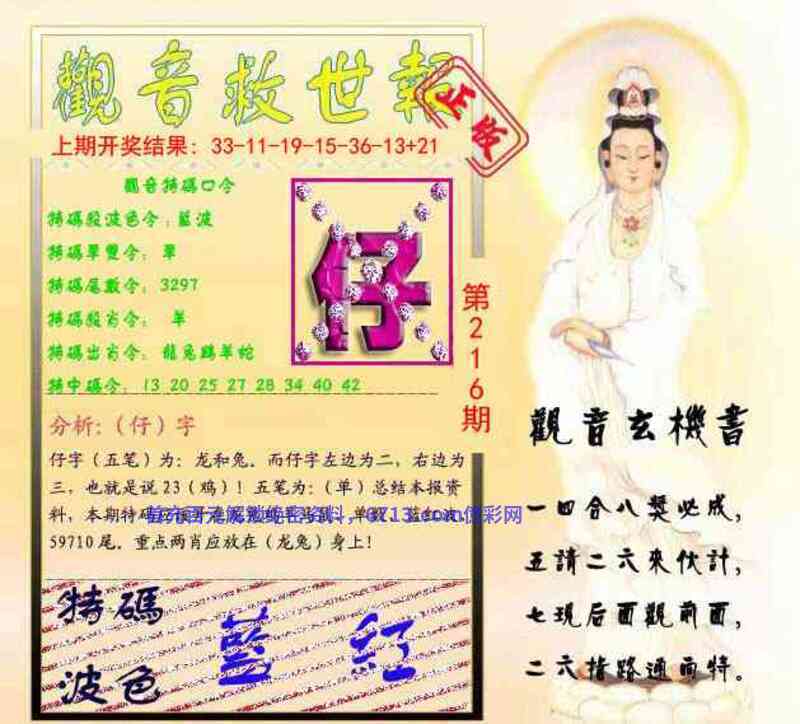 觀音救世報
正版
上期开奖结果：33-11-19-15-36-13+21
觀音特碼口令
特碼殺波色令：藍波
特碼單雙令：單
特碼尾數令：3297
特碼殺肖令：羊
特碼出肖令：龍兔鷄羊蛇
特中碼令：13 20 25 27 28 34 40 42
仔
第216期
分析:（仔）字
仔字（五笔）为：龙和兔．而仔字左边为二，右边为
三，也就是说23（鸡）！五笔为：（单）总结本报资
料，本期特码
59710尾．重点两肖应放在（龙兔）身上！
特碼
波色
藍 紅
觀音玄機書
一四合八獎必成，
五請二六來伙計，
七現后面觀前面，
二六指路通面特。